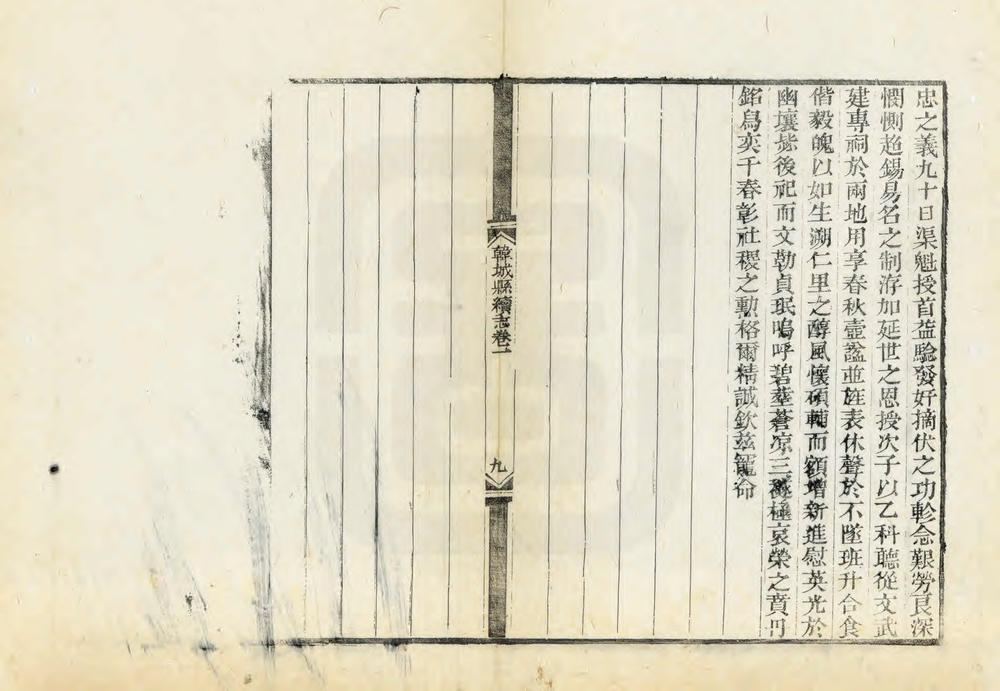 忠之義九十日渠魁授首益驗發奸摘伏之功軫念艱勞良深
憫惻趂錫易名之制洊加延世之恩授次子以乙科聽從文武
建專祠於兩地用享春秋壼諡並旌表休聲於不墜班升合食
偕毅魄以如生溯仁里之醇風懷碩輔而額增新進慰英光於
幽壤毖後祀而文勒貞珉嗚呼碧蓥蒼凉三極哀榮之賁丹
銘烏奕千春彰社稷之勳格爾精誠欽茲寵命
韓城縣續志卷一
九